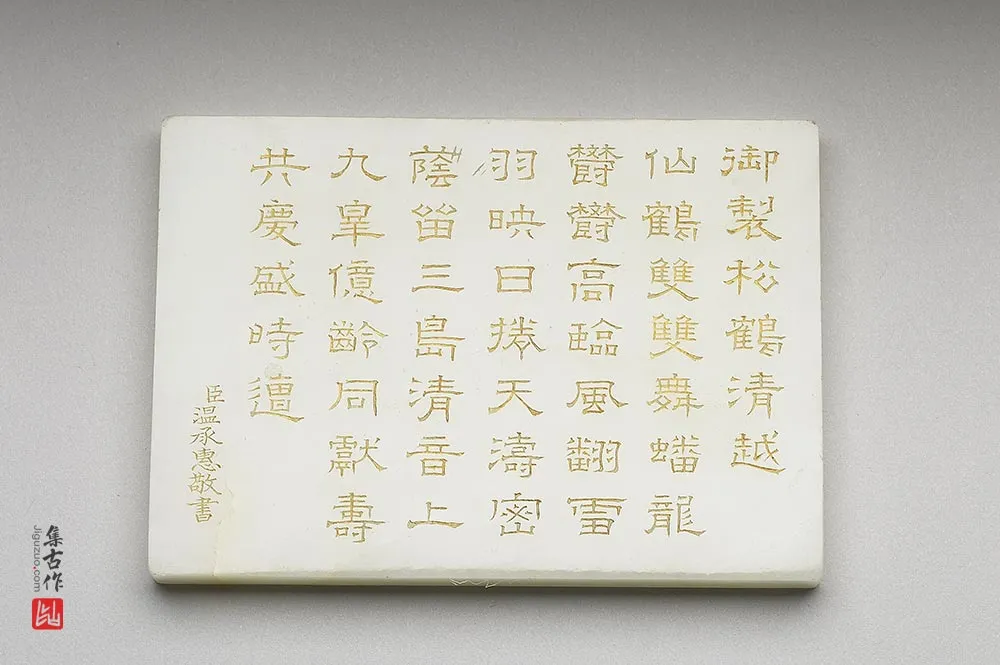 御製松鶴清越
仙鶴雙雙舞蟠龍
欝欝高臨風翻雪
羽映日捲天濤密
蔭留三島清音上
九皐億齡同獻壽
共慶盛時遭
臣温承惠敬書
集古作
Jiguzuo.com